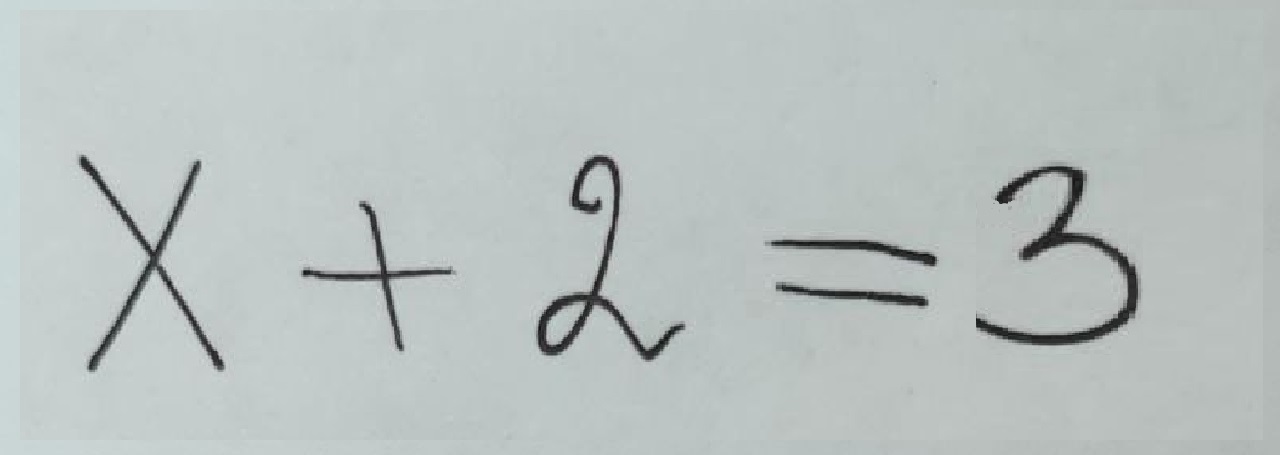 X + 2 = 3